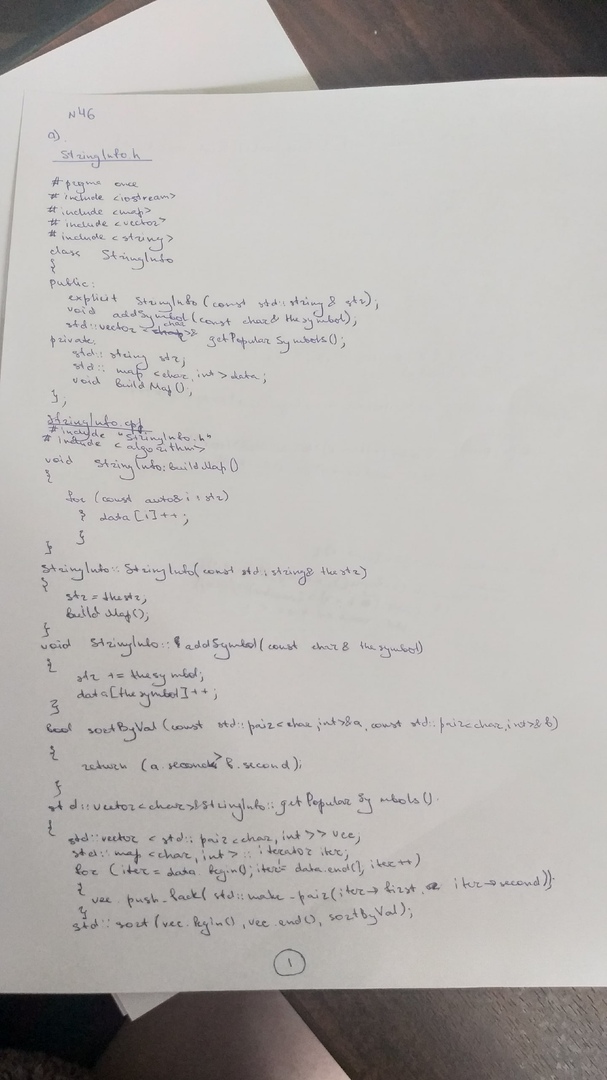 N46
a).
StringInfo.h
# pragme once
# include <iostream>
# include <map>
# include <vector>
# include <string>
class StringInfo
{
public:
explicit StringInfo (const std::string & str);
void addSymbol (const char& thesymbol);
std::vector <char>& getPopularSymbols();
private:
std:: string str;
std:: map <char, int> data;
void buildMap();
};
StringInfo.cpp
# include "StringInfo.h"
# include <algorithm>
void StringInfo::buildMap()
{
for (const auto& i : str)
{ data[i]++;
}
}
StringInfo:: StringInfo(const std::string& thestr)
{
str = thestr;
buildMap();
}
void StringInfo:: addSymbol(const char& thesymbol)
{
str += thesymbol;
data[thesymbol]++;
}
bool sortByVal (const std::pair<char,int>&a, const std::pair<char,int>&b)
{
return (a.second > b.second);
}
std::vector<char>&StringInfo:: getPopularSymbols()
{
std::vector < std:: pair <char, int >> vec;
std:: map <char, int> :: iterator iter;
for (iter = data.begin(); iter != data.end(); iter++)
{ vec.push_back( std::make_pair(iter->first, iter->second));
}
std:: sort (vec.begin(), vec.end(), sortByVal);
1